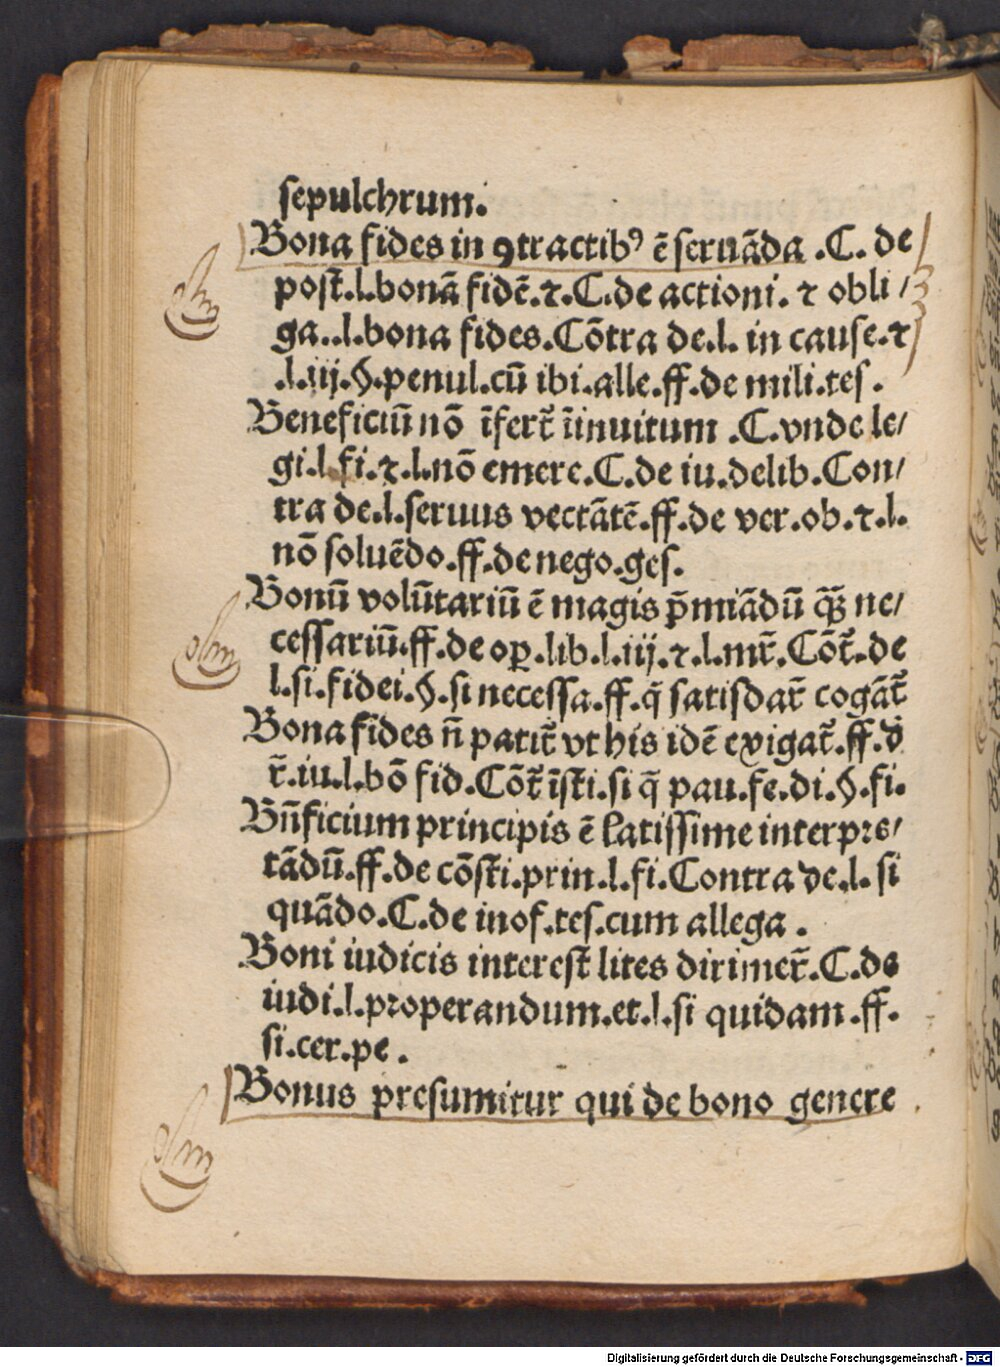 sepulchrum.
Bona fides in ꝯtractibꝰ ē seruāda .C. de
post̄.l.bonā fidē.⁊.C.de actioni. ⁊ obli/
ga..l.bona fides.Cōtra de.l. in cause.⁊
.l.iij.§.penul.cū ibi.alle.ff.de mili.tes.
Beneficiū nō īfert̄ īinuitum .C.vnde le/
gi.l.fi.⁊.l.nō emere.C.de iu.delib.Con/
tra de.l.seruus vectātē.ff.de ver.ob.⁊.l.
nō soluēdo.ff.de nego.ges.
Bonū volūtariū ē magis p̄miādū ꝙ̄ ne/
cessariū.ff.de oꝑ.lib.l.iij.⁊.l.mr̄.Cōt̄.de
l.si.fidei.§.si necessa.ff.q̄ satisdar̄ cogāt̄
Bona fides n̄ patit̄ vt his idē exigat̄.ff.d̄
r̄.iu.l.bō fid.Cōt̄ īsti.si q̄ pau.fe.di.§.fi.
Bn̄ficium principis ē latissime interpre/
tādū.ff.de cōsti.prin.l.fi.Contra de.l. si
quādo.C.de inof.tes.cum allega .
Boni iudicis interest lites dirimer̄.C.de
iudi.l.properandum.et.l.si quidam.ff.
si.cer.pe .
Bonus presumitur qui de bono genere
Digitalisierung gefördert durch die Deutsche Forschungsgemeinschaft - DFG